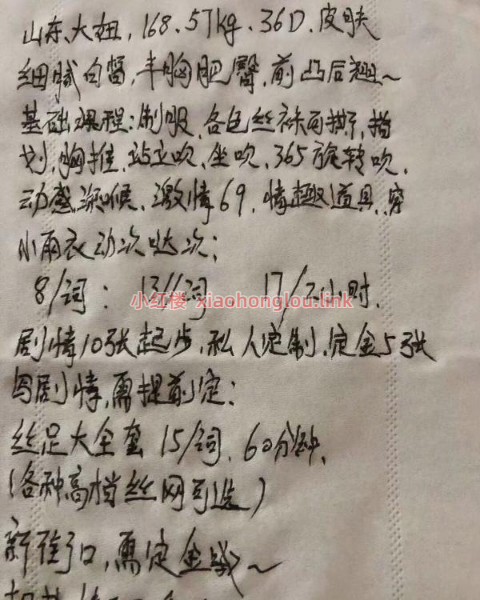 山东大妞，168.57kg.36D.皮肤
细腻白皙，丰胸肥臀，前凸后翘～
基础课程：制服、各色丝袜可撕，指
划，胸推、站立吹、坐吹、365旋转吹，
动感深喉、激情69，情趣道具，穿
小雨衣动次哒次；
8/词： 13//词 17/2小时．
小红楼 xiaohonglou.link
剧情10张起步，私人定制，定金5张
写剧情，需提前定；
丝足大全套 15/词、60分钟、
（各种高档丝网可选）
新街口，需定金哦～